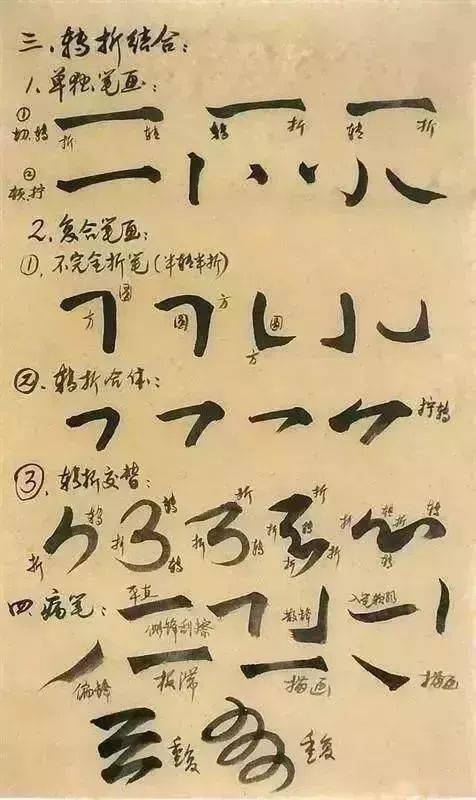 三、转折结合：
1、单独笔画：
① 切、转 折 转 转 折 转 折
② 顿、拧
2、复合笔画：
①、不完全折笔（半转半折）
方 圆 圆 方 圆 方
②、转折合体：
拧转
③、转折交替：
折 转 折 转 转 折 折 转 折 折 转 折 折 转 折 转 转
四、病笔：
侧锋刮擦 散锋
偏锋 板滞 描画 描画
重复 重复